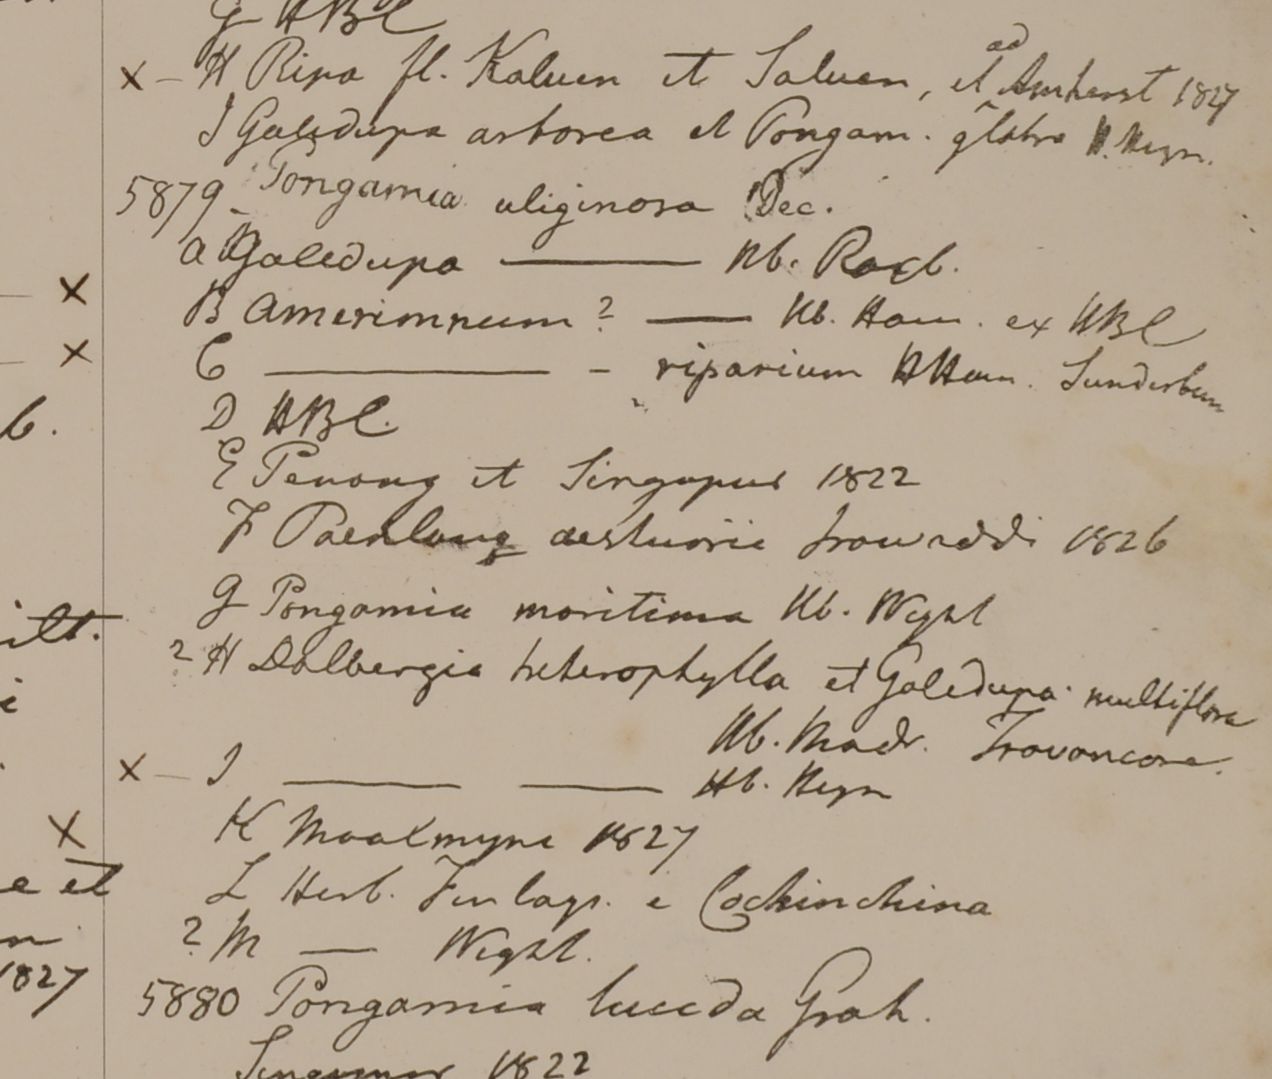 G HBC
x - H Ripa fl. Kaluen et Saluen, et ad Amherst 1827
I Galedupa arborea et Pongam. glabra H. Heyn.
5879 Pongamia uliginosa Dec.
a Galedupa ——— Hb. Roxb.
x B Amerimnum? — Hb. Ham. ex HBC
x C ——— - riparium HHam. Sunderbun
b. D HBC.
E Penang et Singapur 1822
F Paenlang aestuarie Irawaddi 1826
G Pongamia maritima Hb. Wight
ilt. ? H Dalbergia heterophylla et Galedupa multiflora
Hb. Madr. Travancore.
x - I ——— ——— Hb. Heyn
x K Moalmyne 1827
e et L Herb. Finlays. e Cochinchina
n ? M — Wight.
1827 5880 Pongamia lucida Grah.
Singapur 1822